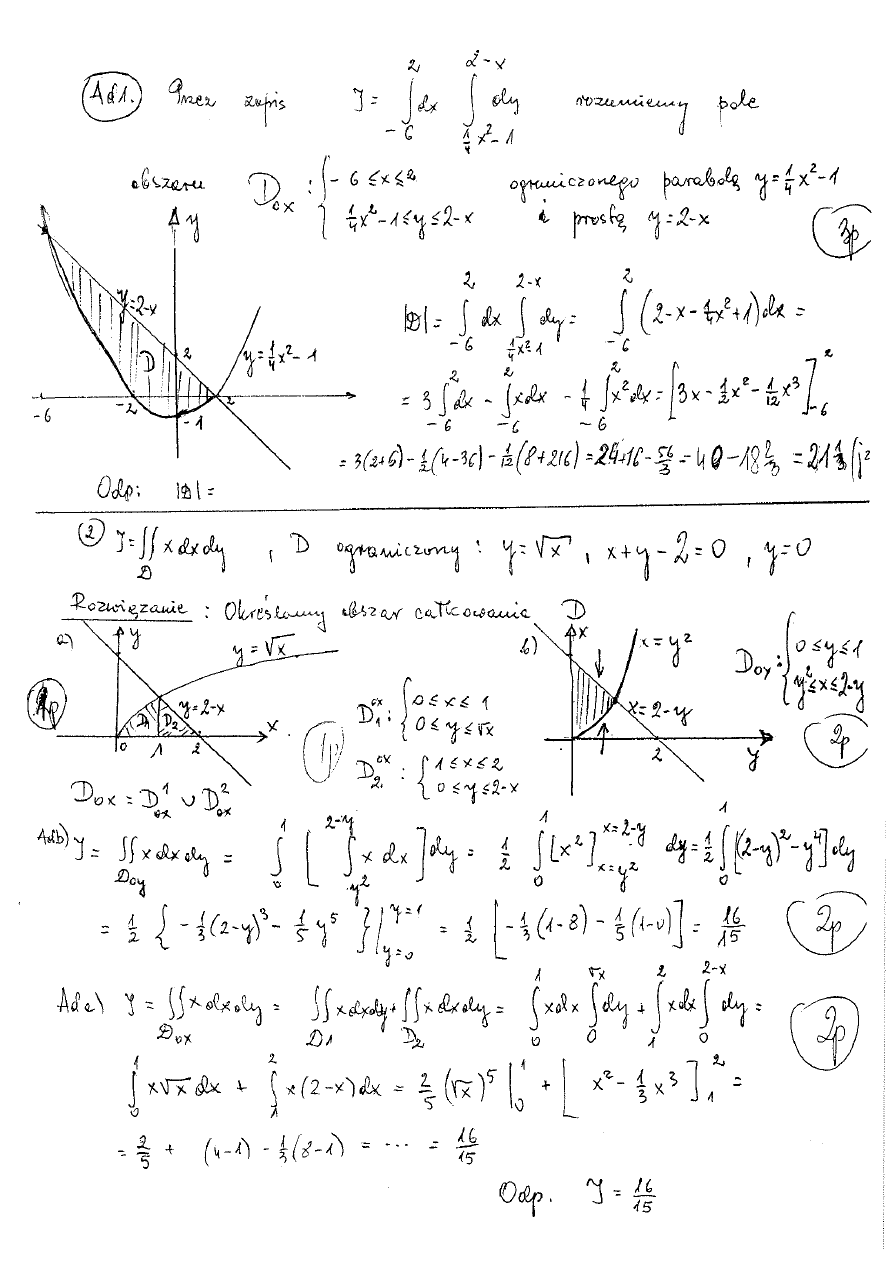 Ad1. Przez zapis J = ∫_{-6}^{2} dx ∫_{¼x²-1}^{2-x} dy rozumiemy pole
obszaru D_ox : { -6 ≤ x ≤ 2 ; ¼x²-1 ≤ y ≤ 2-x ograniczonego parabolą y = ¼x²-1 i prostą y = 2-x
3p
y
y=2-x
D
2
y=¼x²-1
-6 -2 -1 2
|D| = ∫_{-6}^{2} dx ∫_{¼x²-1}^{2-x} dy = ∫_{-6}^{2} (2-x-¼x²+1)dx =
= 3∫_{-6}^{2} dx - ∫_{-6}^{2} xdx - ¼∫_{-6}^{2} x²dx = [3x - ½x² - 1/12 x³]_{-6}^{2}
= 3(2+6) - ½(4-36) - 1/12(8+216) = 24+16 - 56/3 = 40 - 18⅔ = 21⅓ (j²
Odp: |D| =
② J = ∬_D x dxdy , D ograniczony : y = √x , x+y-2=0 , y=0
Rozwiązanie : Określamy obszar całkowania D
a) y
y=√x
1p
D₁ D₂ y=2-x
0 1 2 x
D₁^ox : { 0 ≤ x ≤ 1 ; 0 ≤ y ≤ √x
1p
D₂^ox : { 1 ≤ x ≤ 2 ; 0 ≤ y ≤ 2-x
b) x
x=y²
x=2-y
2 y
D_oy : { 0 ≤ y ≤ 1 ; y² ≤ x ≤ 2-y
2p
D_ox = D¹_ox ∪ D²_ox
Adb) J = ∬_{D_oy} x dxdy = ∫_0^1 [ ∫_{y²}^{2-y} x dx ] dy = ½ ∫_0^1 [x²]_{x=y²}^{x=2-y} dy = ½ ∫_0^1 [(2-y)² - y⁴] dy
= ½ { -⅓(2-y)³ - ⅕y⁵ }|_{y=0}^{y=1} = ½ [ -⅓(1-8) - ⅕(1-0) ] = 16/15
2p
Ad a) J = ∬_{D_ox} x dxdy = ∬_{D1} xdxdy + ∬_{D₂} x dxdy = ∫_0^1 xdx ∫_0^{√x} dy + ∫_1^2 xdx ∫_0^{2-x} dy =
2p
∫_0^1 x√x dx + ∫_1^2 x(2-x)dx = ⅖(√x)⁵ |_0^1 + [ x² - ⅓x³ ]_1^2 =
= ⅖ + (4-1) - ⅓(8-1) = ... = 16/15
Odp. J = 16/15